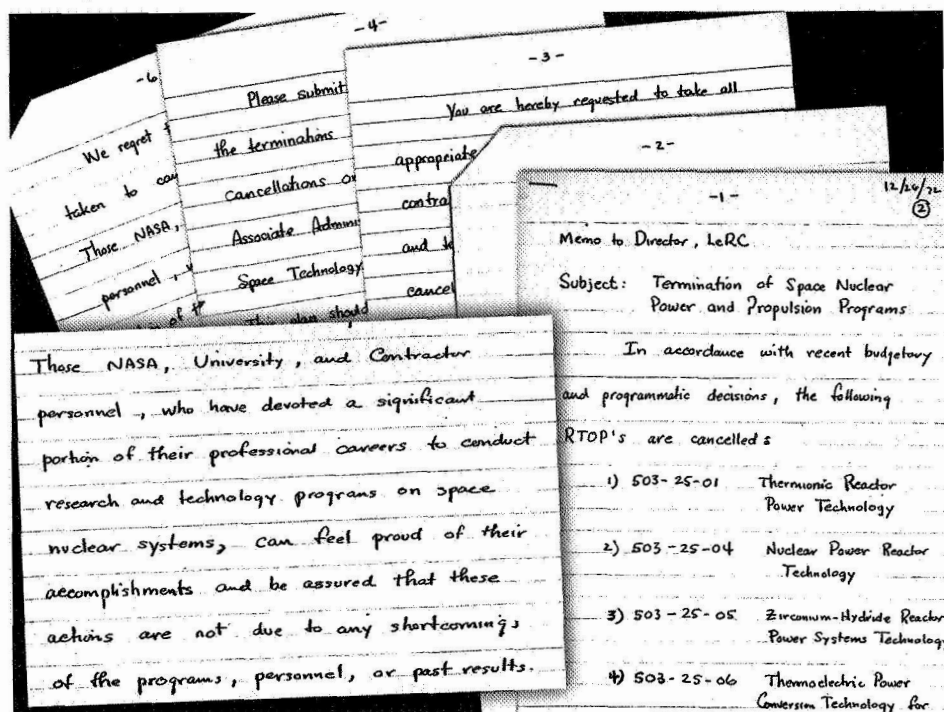 -6
We regret
taken to
Those NASA,
personnel,
of
-4-
Please submit
the terminations
cancellations or
Associate Admini
Space Technology
This plan should
-3-
You are hereby requested to take all
appropriate
contra
and te
cancel
-2-
-1-
②
Memo to Director, LeRC
Subject: Termination of Space Nuclear
Power and Propulsion Programs
In accordance with recent budgetary
and programmatic decisions, the following
RTOP's are cancelled:
1) 503-25-01 Thermionic Reactor
Power Technology
2) 503-25-04 Nuclear Power Reactor
Technology
3) 503-25-05 Zirconium-Hydride Reactor
Power Systems Technology
4) 503-25-06 Thermoelectric Power
Conversion Technology for
Those NASA, University, and Contractor
personnel, who have devoted a significant
portion of their professional careers to conduct
research and technology programs on space
nuclear systems, can feel proud of their
accomplishments and be assured that these
actions are not due to any shortcomings
of the programs, personnel, or past results.